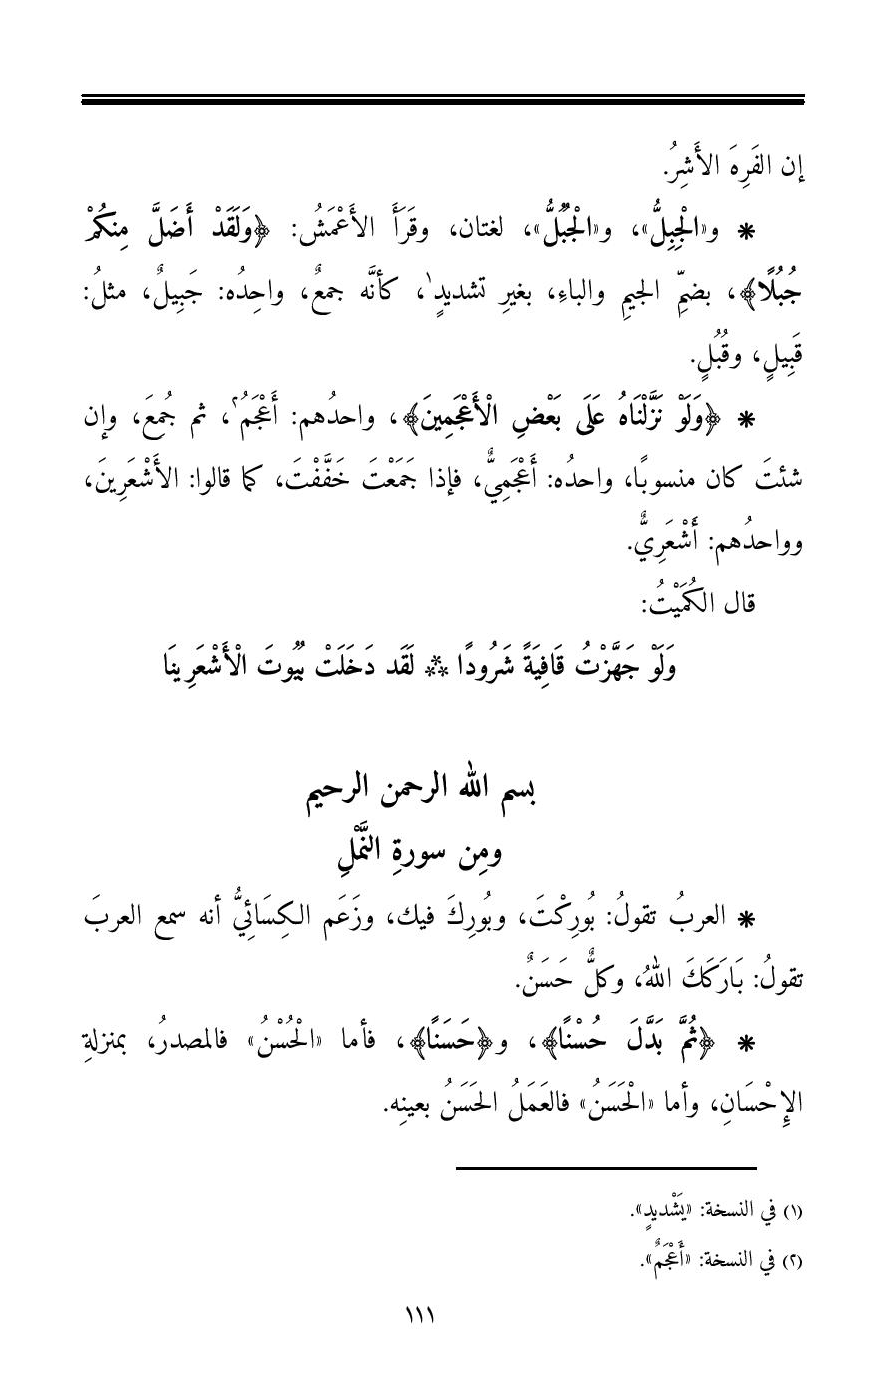 إن الفَرِهَ الأَشِرُ.
* و«الْجِبِلُّ»، و«الْجُبُلُّ»، لغتان، وقَرَأَ الأَعْمَشُ: ﴿وَلَقَدْ أَضَلَّ مِنكُمْ
جُبُلًا﴾، بضمِّ الجيمِ والباءِ، بغيرِ تشديدٍ١، كأنَّه جمعٌ، واحِدُه: جَبِيلٌ، مثلُ:
قَبِيلٍ، وقُبُلٍ.
* ﴿وَلَوْ نَزَّلْنَاهُ عَلَى بَعْضِ الْأَعْجَمِينَ﴾، واحدُهم: أَعْجَمُ٢، ثم جُمِعَ، وإن
شئتَ كان منسوبًا، واحدُه: أَعْجَمِيٌّ، فإذا جَمَعْتَ خَفَّفْتَ، كما قالوا: الأَشْعَرِينَ،
وواحدُهم: أَشْعَرِيٌّ.
قال الكُمَيْتُ:
وَلَوْ جَهَّزْتُ قَافِيَةً شَرُودًا ** لَقَد دَخَلَتْ بُيُوتَ الْأَشْعَرِينَا
بسم الله الرحمن الرحيم
ومِن سورةِ النَّمْلِ
* العربُ تقولُ: بُورِكْتَ، وبُورِكَ فيك، وزَعَم الكِسَائِيُّ أنه سمع العربَ
تقولُ: بَارَكَكَ اللهُ، وكلٌّ حَسَنٌ.
* ﴿ثُمَّ بَدَّلَ حُسْنًا﴾، و﴿حَسَنًا﴾، فأما «الْحُسْنُ» فالمصدرُ، بمنزلةِ
الإِحْسَانِ، وأما «الْحَسَنُ» فالعَمَلُ الحَسَنُ بعينِه.
(١) في النسخة: «يَشْديدٍ».
(٢) في النسخة: «أَعْجَمٌ».
١١١